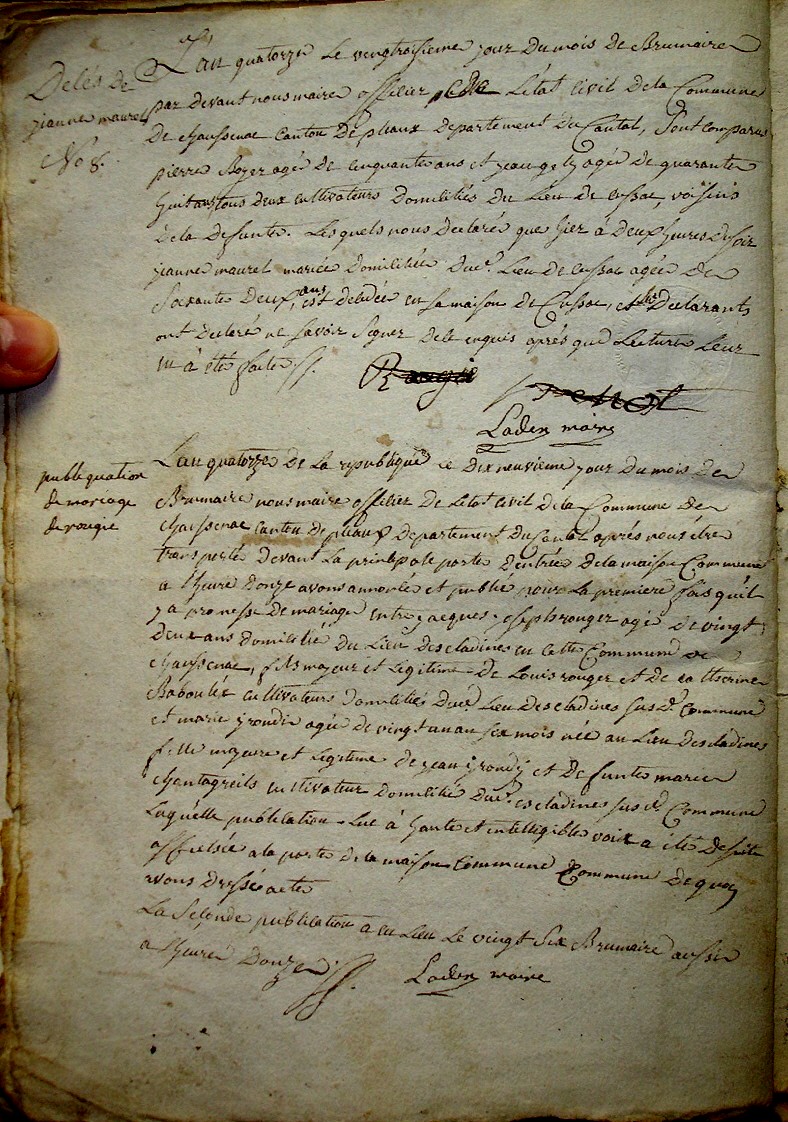 Delés de
jeanne maurel
No 8.
L'an quatorze le vingtroisieme jour du mois de Brumaire
par devant nous maire officier de L'état Civil de la Commune
de chaussenac Canton de pleaux departement du Cantal, Sont comparus
pierre Boyer agé de cinquante ans et jean agé de quarante
huit ans tous deux cultivateurs domiciliés du Lieu de Cussac, voisins
de la defunte. Lesquels nous declaré que hier à deux heures du soir
jeanne maurel mariée domiciliée dud. Lieu de Cussac agée de
Soixante deux ans, est dcédée en sa maison de Cussac, et les declarants
ont declaré ne savoir Signer de ce enquis après que Lecture Leur
en à été faite.
Rougié
Laden maire
publiquation
de mariage
de rougie
L'an quatorze de La republique le dix neuvieme jour du mois de
Brumaire nous maire officier de L'état Civil de la Commune de
chaussenac Canton de pleaux departement du Cantal après nous être
transporté devant La principale porte d'entrée de la maison Commune
a l'heure donze avons annoncé et publié pour La premiere fois quil
y a promesse de mariage entre jacques joseph rouger agé de vingt
deux ans domicilié du Lieu des cladines en cette Commune de
chaussenac, fils majeur et Legitime de Louis rouger et de catherine
Baboulés cultivateurs domiciliés dud. Lieu des cladines susd. Commune
et marie jrondij agée de vingt un an six mois née au Lieu des cladines
fille majeure et Legitime de jean jrondij et defunte marie
chantagreils cultivateur domicilié dud. es cladines susd. Commune
Laquelle publication Lue à haute et intelligible voix a été de suite
affichée a la porte de la maison Commune Commune de quoy
avons dressé acte
La Seconde publication à eu Lieu Le vingt Six Brumaire aussi
a l'heure Donze.
Laden maire